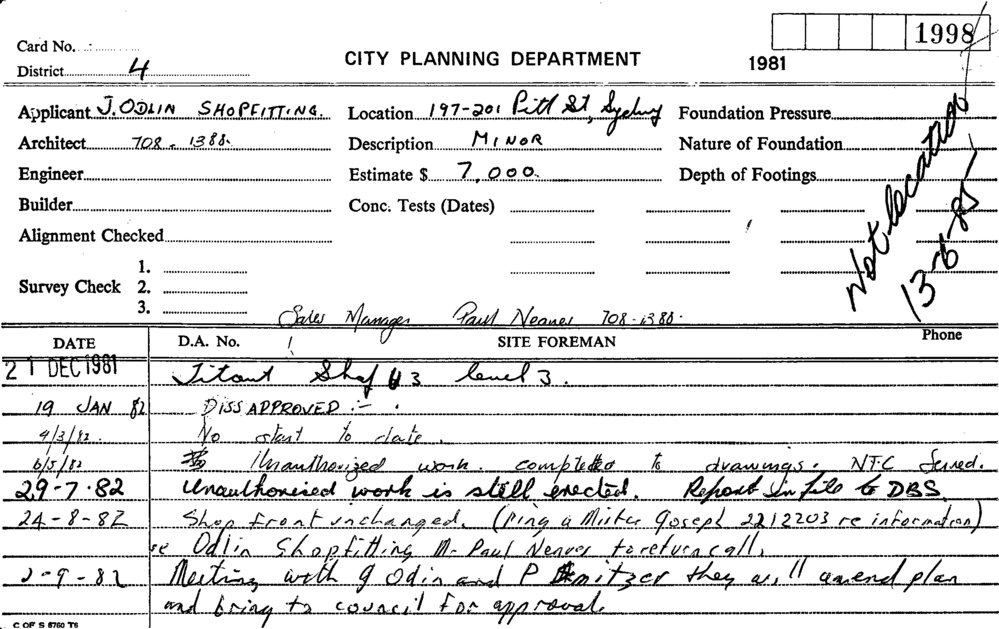 1998
Card No.
CITY PLANNING DEPARTMENT
1981
District 4
Applicant J. ODLIN SHOPFITTING. Location 197-201 Pitt St, Sydney Foundation Pressure
Architect 708-1388. Description MINOR Nature of Foundation
Engineer Estimate $ 7,000. Depth of Footings
Builder Conc. Tests (Dates)
Alignment Checked
Not location
13-6-85
Survey Check 1.
2.
3.
Sales Manager Paul Neaves 708-1388.
DATE D.A. No. SITE FOREMAN Phone
21 DEC 1981 Shop U3 level 3.
19 JAN 82 DISSAPPROVED :-
4/3/82. No start to date.
6/5/82 Unauthorized work. completed to drawings. NTC Served.
29-7-82 Unauthorised work is still erected. Report in file to DBS
24-8-82 Shop front unchanged. (ring a Mister Joseph 2212203 re information)
re Odlin Shopfitting Mr Paul Neaves to return call.
2-9-82 Meeting with J Odin and P they will amend plan
and bring to council for approval.
C OF S 8760 T6